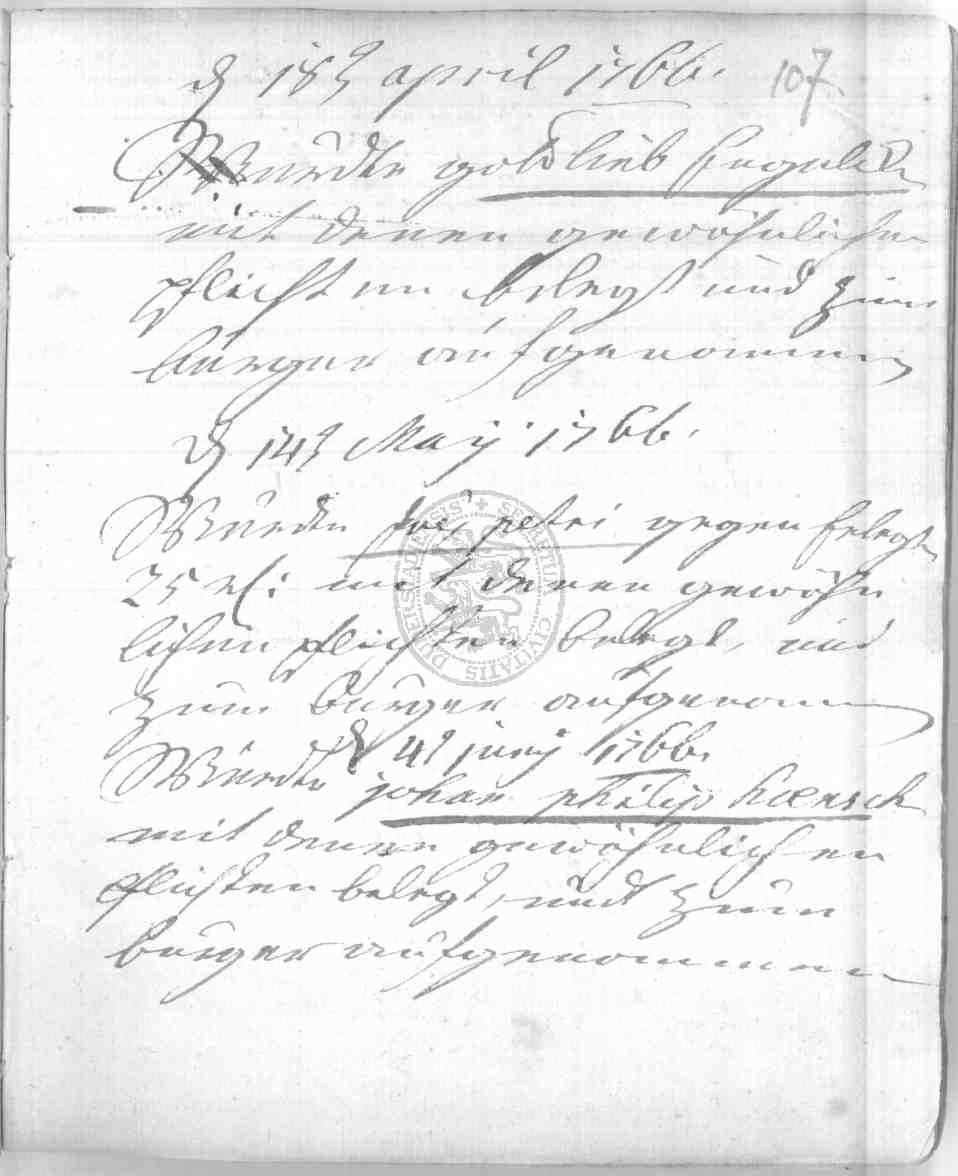 d 18t april 1766.
107
Wurdte gottlieb
mit denen gewöhnlichen
pflichten belegt und zum
bürger aufgenommen
d 14t Maij 1766.
Wurdte petri gegen erlegte
25 rl: mit denen gewöhn
lichen pflichten belegt, und
zum bürger aufgenomen
d 4t junij 1766.
Wurdte johan philip Koersch
mit denen gewöhnlichen
pflichten belegt, undt zum
bürger aufgenommen
SIGILLUM CIVITATIS DUDERSTADIENSIS